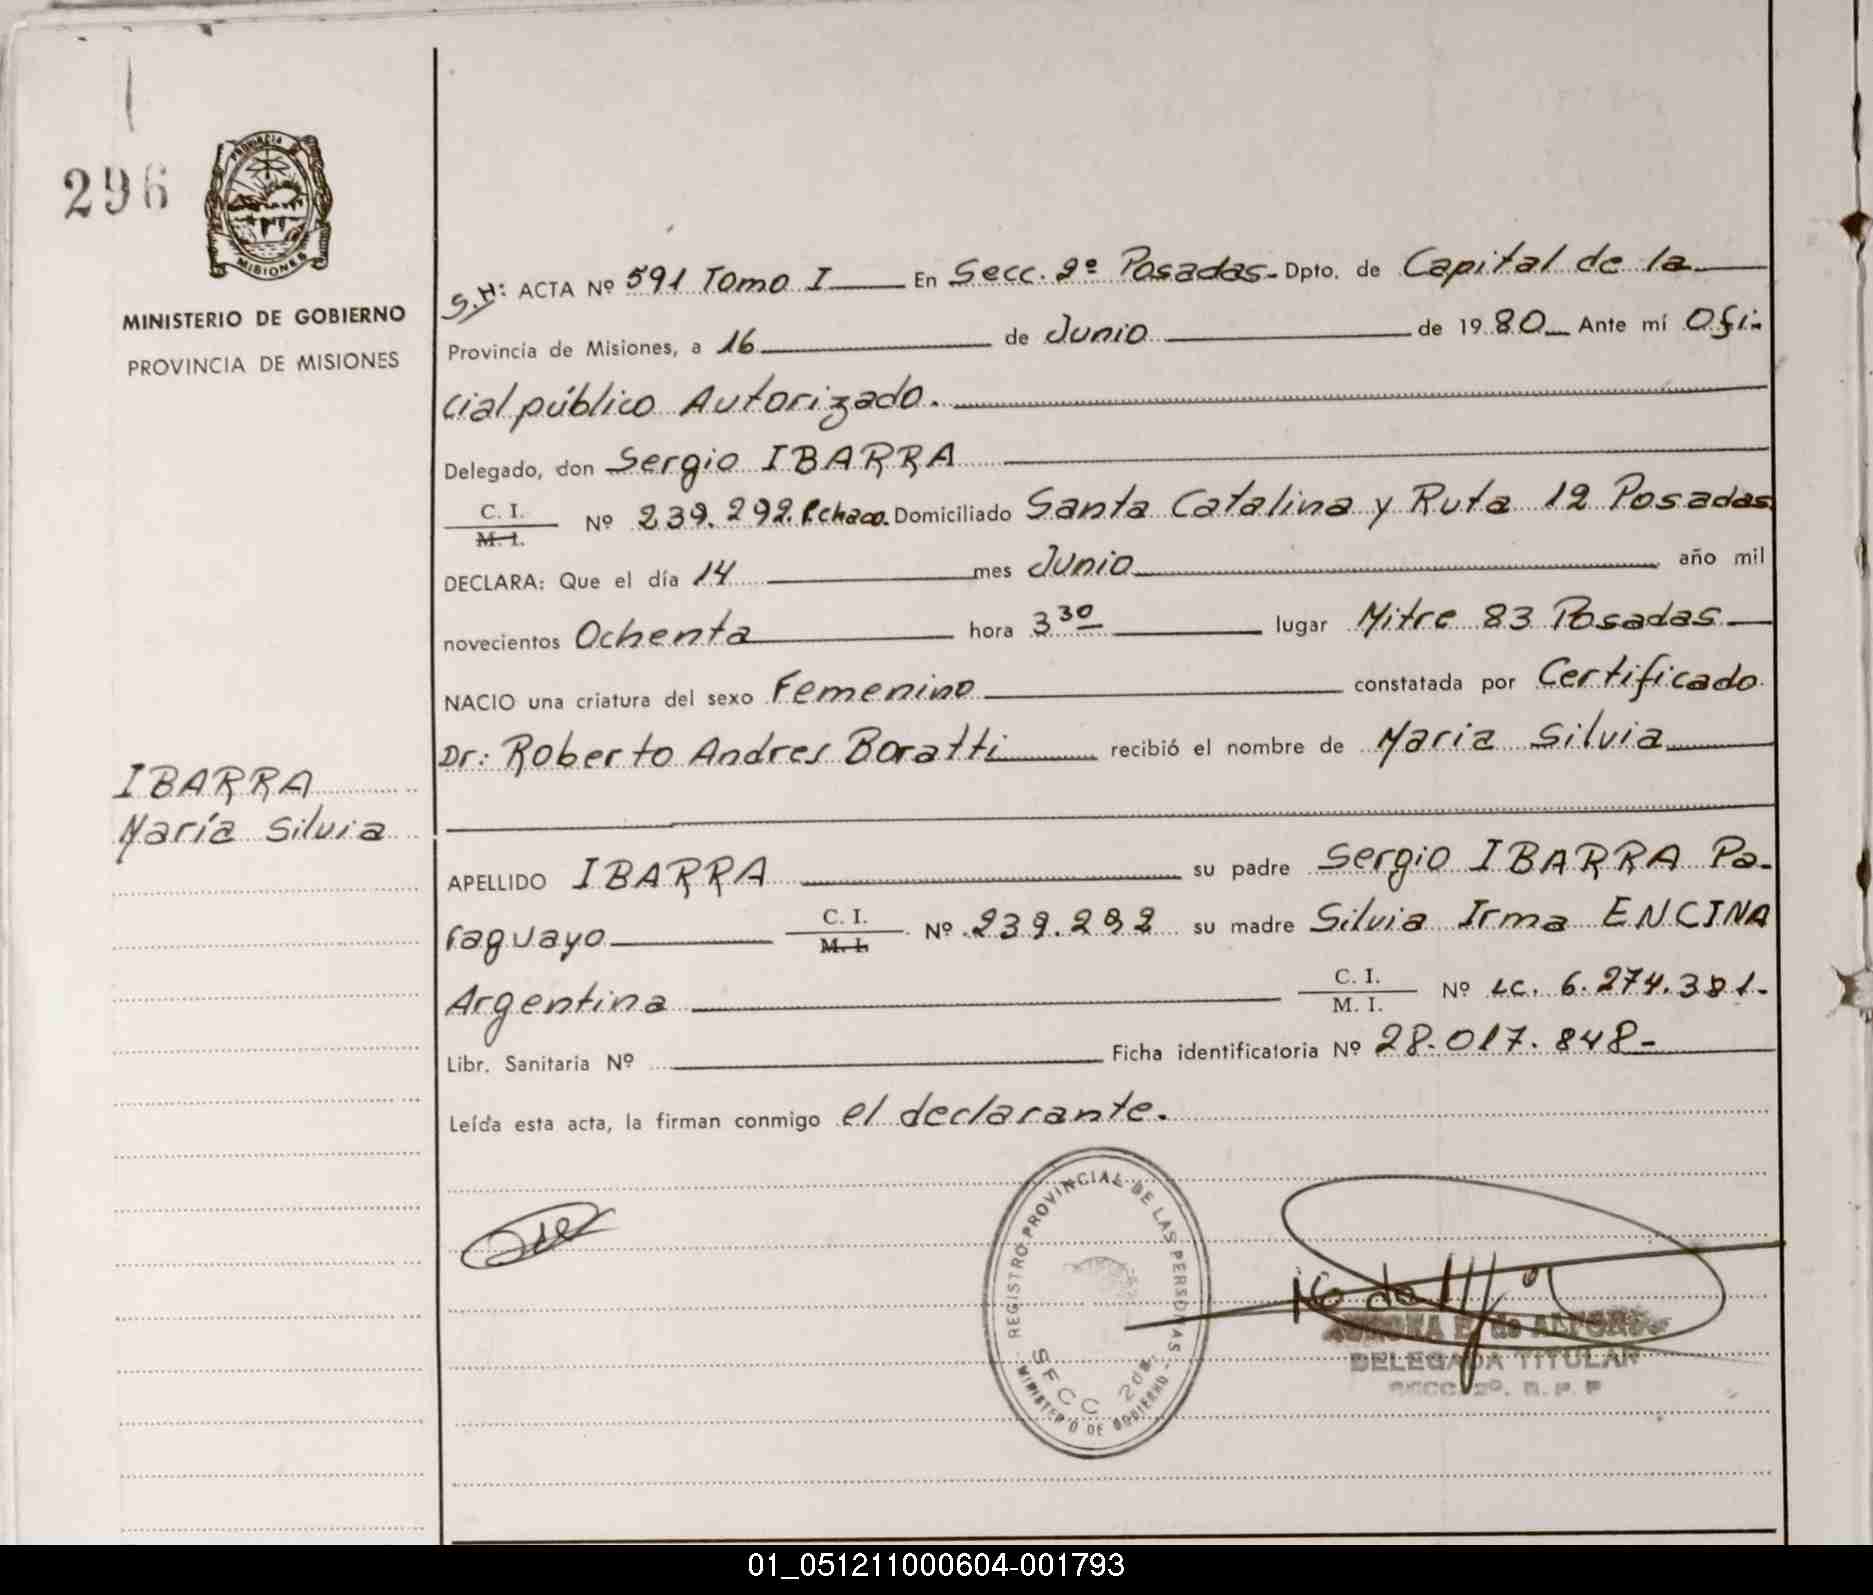 296
PROVINCIA DE
MISIONES
MINISTERIO DE GOBIERNO
PROVINCIA DE MISIONES
IBARRA
María Silvia
S.H: ACTA Nº 591 Tomo I En Secc. 2º Posadas- Dpto. de Capital de la
Provincia de Misiones, a 16 de Junio de 1980 Ante mí Ofi-
cial público Autorizado.
Delegado, don Sergio IBARRA
C. I.
M. I. Nº 239.292. P.chaco. Domiciliado Santa Catalina y Ruta 12 Posadas
DECLARA: Que el día 14 mes Junio año mil
novecientos Ochenta hora 3 30 lugar Mitre 83 Posadas
NACIO una criatura del sexo Femenino constatada por Certificado
Dr: Roberto Andres Boratti recibió el nombre de Maria Silvia
APELLIDO IBARRA su padre Sergio IBARRA Pa-
raguayo C. I. M. I. Nº 239.292 su madre Silvia Irma ENCINA
Argentina C. I. M. I. Nº LC. 6.274.381.-
Libr. Sanitaria Nº Ficha identificatoria Nº 28.017.848-
Leída esta acta, la firman conmigo el declarante.
REGISTRO PROVINCIAL DE LAS PERSONAS
SECC 2da.
MINISTERIO DE GOBIERNO
E. de ALFONSO
DELEGADA TITULAR
SECC. 2º. R. P. P
01_051211000604-001793